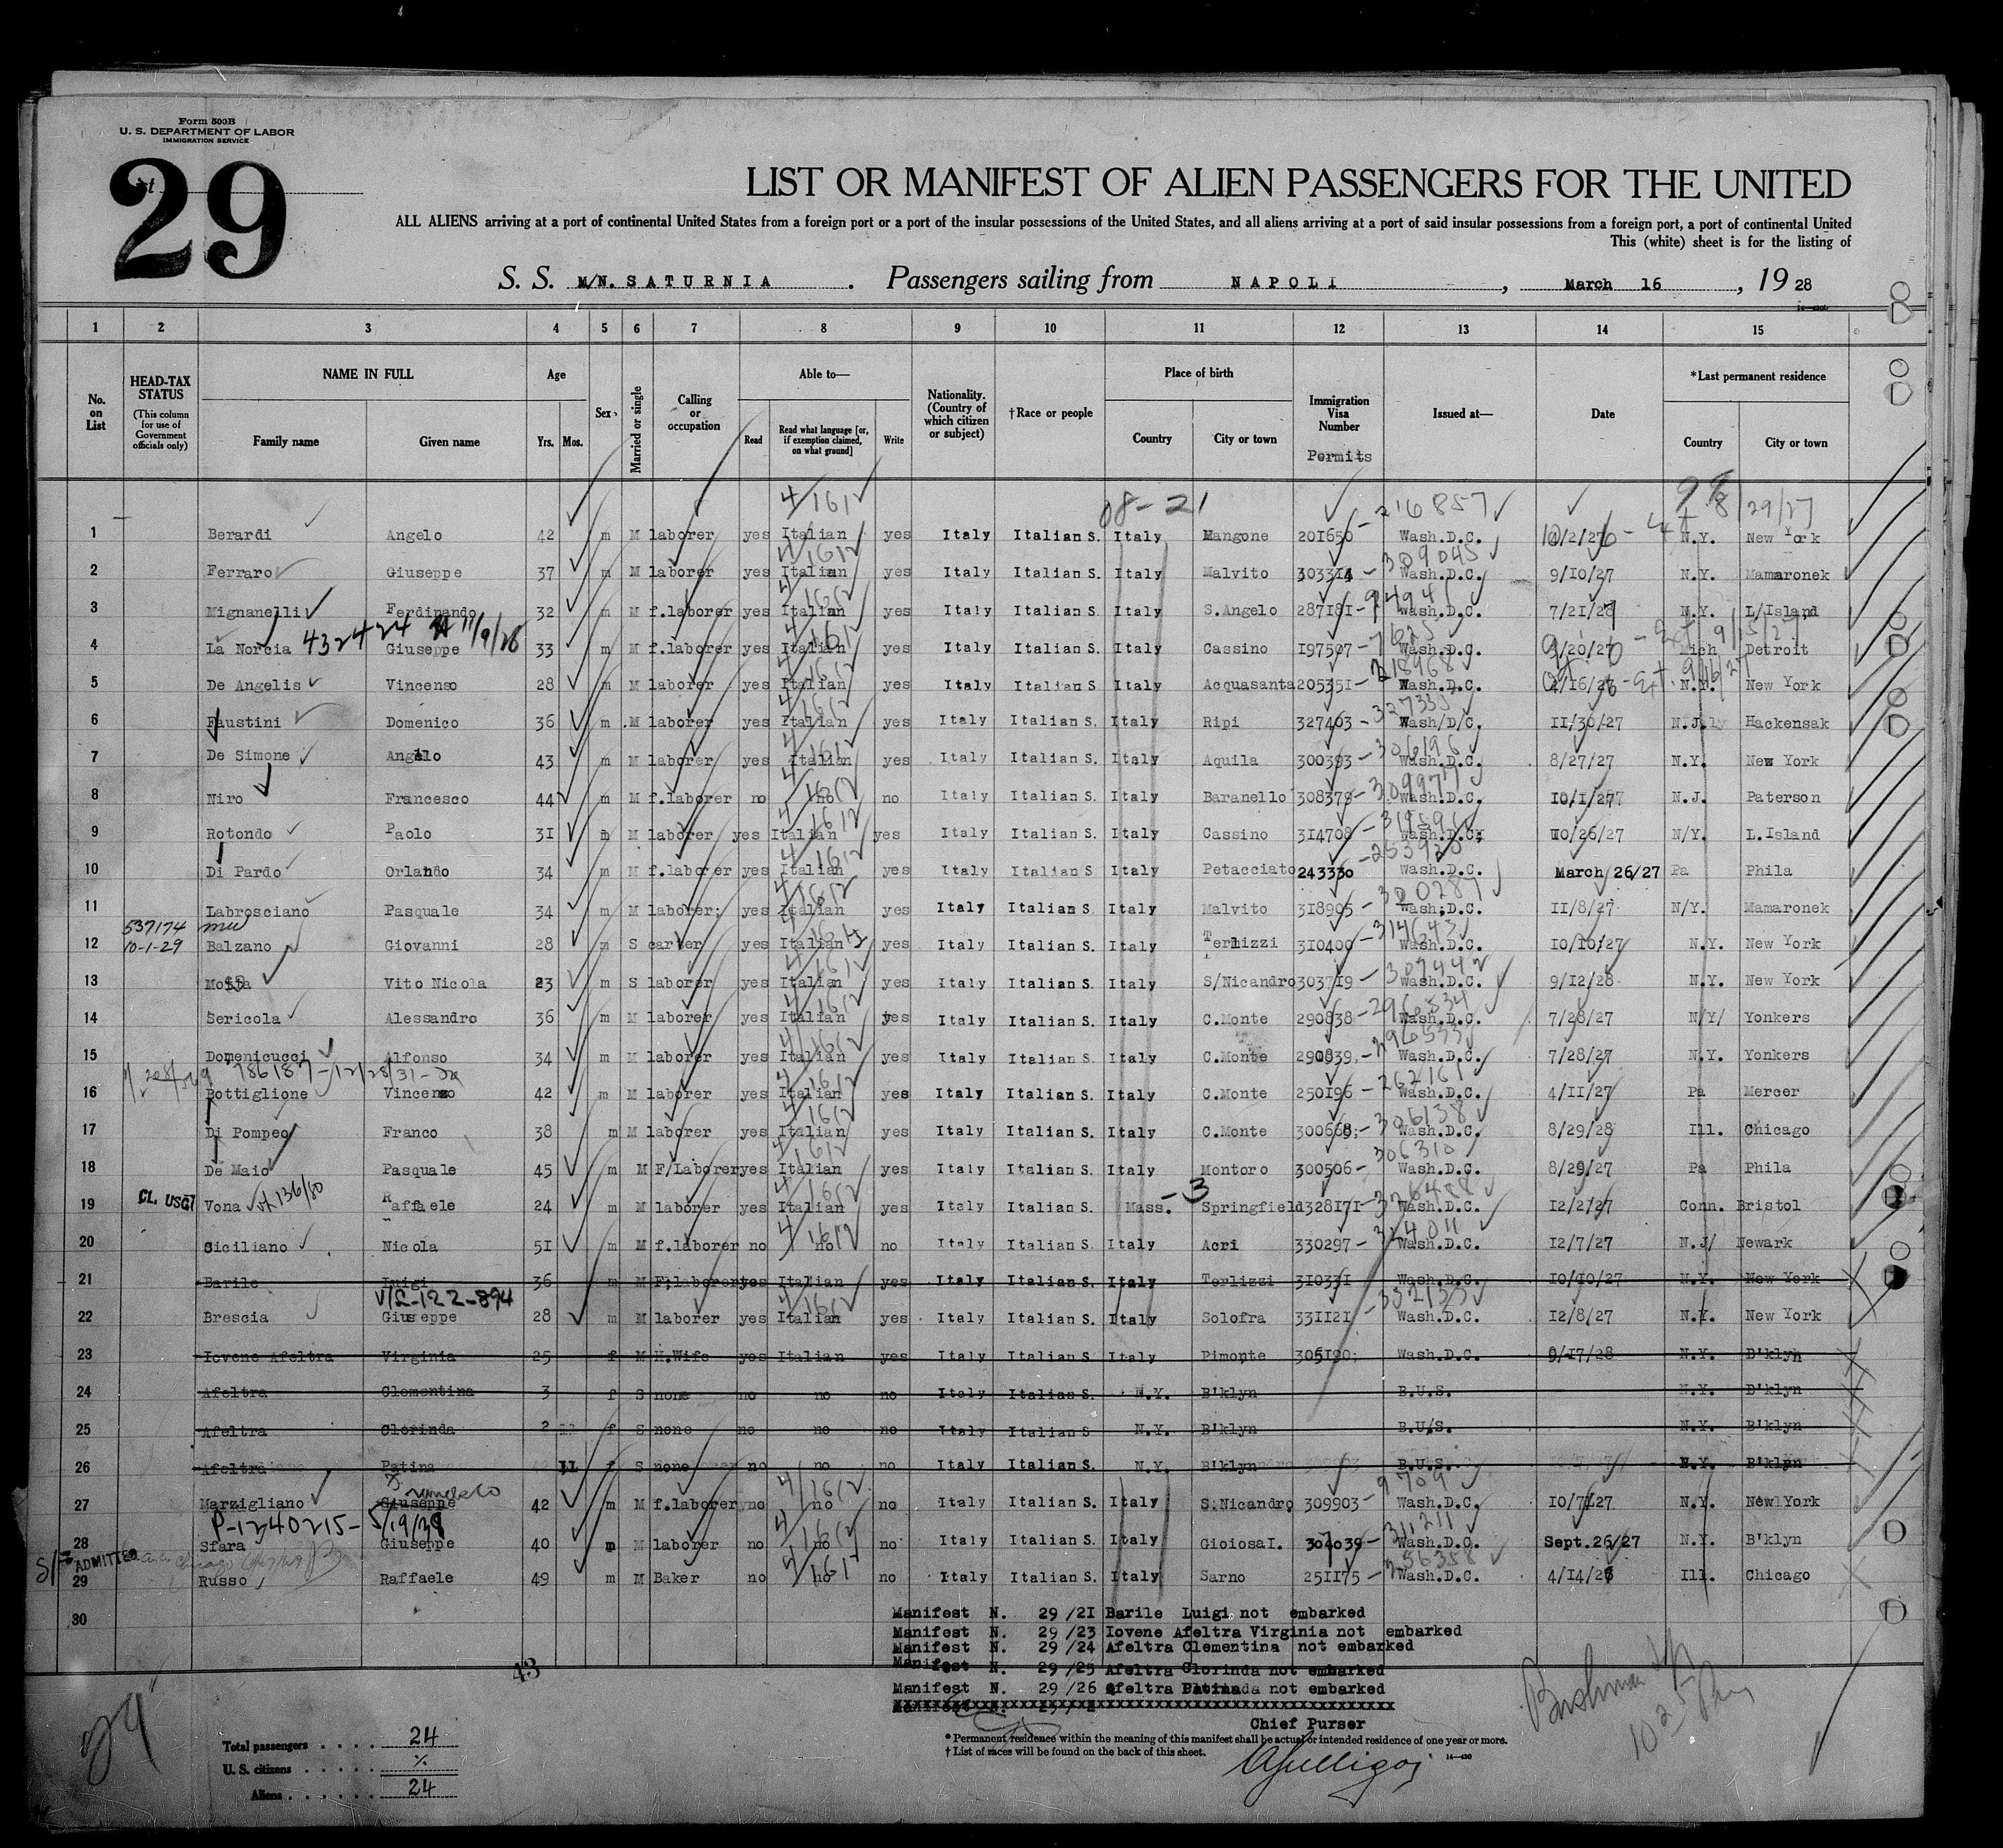 Form 500B
U. S. DEPARTMENT OF LABOR
IMMIGRATION SERVICE
29
LIST OR MANIFEST OF ALIEN PASSENGERS FOR THE UNITED
ALL ALIENS arriving at a port of continental United States from a foreign port or a port of the insular possessions of the United States, and all aliens arriving at a port of said insular possessions from a foreign port, a port of continental United
This (white) sheet is for the listing of
S. S. M/N. SATURNIA . Passengers sailing from NAPOLI , March 16 , 19 28
1 2 3 4 5 6 7 8 9 10 11 12 13 14 15
No. on List
HEAD-TAX STATUS (This column for use of Government officials only)
NAME IN FULL Family name Given name
Age Yrs. Mos.
Sex
Married or single
Calling or occupation
Able to— Read Read what language [or, if exemption claimed, on what ground] Write
Nationality. (Country of which citizen or subject)
†Race or people
Place of birth Country City or town
Immigration Visa Number Permits
Issued at—
Date
*Last permanent residence Country City or town
08-21 216857 8/29/27
1 Berardi Angelo 42 m M laborer yes Italian yes Italy Italian S. Italy Mangone 201650 Wash.D.C. N.Y. New York
309045
2 Ferraro Giuseppe 37 m M laborer yes Italian yes Italy Italian S. Italy Malvito 303314 Wash.D.C. 9/10/27 N.Y. Mamaronek
3 Mignanelli Ferdinando 32 m M f.laborer yes Italian yes Italy Italian S. Italy S.Angelo 287181 Wash.D.C. 7/21/28 N.Y. L/Island
432424 11/9/26 Ext 9/15/27
4 La Norcia Giuseppe 33 m M f.laborer yes Italian yes Italy Italian S. Italy Cassino 197507 Wash.D.C. Mich Detroit
218968 Ext. 9/16/27
5 De Angelis Vincenso 28 m M laborer yes Italian yes Italy Italian S. Italy Acquasanta 205351 Wash.D.C. N.Y. New York
6 Faustini Domenico 36 m M laborer yes Italian yes Italy Italian S. Italy Ripi 327403 Wash/D/C. 11/30/27 N.J. Hackensak
306196
7 De Simone Angelo 43 m M laborer yes Italian yes Italy Italian S. Italy Aquila 300393 Wash.D.C. 8/27/27 N.Y. New York
309977
8 Niro Francesco 44 m M f.laborer no no no Italy Italian S. Italy Baranello 308379 Wash.D.C. 10/1/27 N.J. Paterson
9 Rotondo Paolo 31 m M laborer yes Italian yes Italy Italian S. Italy Cassino 314708 Wash.D.C. 10/26/27 N/Y. L.Island
10 Di Pardo Orlando 34 m M f.laborer yes Italian yes Italy Italian S. Italy Petacciato 243330 Wash.D.C. March 26/27 Pa Phila
11 Labrosciano Pasquale 34 m M laborer; yes Italian yes Italy Italian S. Italy Malvito 318905 Wash;D.C. 11/8/27 N/Y. Mamaronek
537174 314643
10-1-29
12 Balzano Giovanni 28 m S carter yes Italian yes Italy Italian S. Italy Terlizzi 310400 Wash.D.C. 10/10/27 N.Y. New York
307442
13 Vito Nicola 23 m S laborer yes Italian yes Italy Italian S. Italy S/Nicandro 303719 Wash.D.C. 9/12/28 N.Y. New York
296534
14 Sericola Alessandro 36 m M laborer yes Italian yes Italy Italian S. Italy C.Monte 290838 Wash.D.C. 7/28/27 N/Y/ Yonkers
296533
15 Domenicucci Alfonso 34 m M laborer yes Italian yes Italy Italian S. Italy C.Monte 290839 Wash.D.C. 7/28/27 N.Y. Yonkers
786187-12/28/31 262161
16 Bottiglione Vincenzo 42 m M laborer yes Italian yes Italy Italian S. Italy C.Monte 250196 Wash.D.C. 4/11/27 Pa Mercer
306138
17 Di Pompeo Franco 38 m M laborer yes Italian yes Italy Italian S. Italy C.Monte 300668; Wash.D.C. 8/29/28 Ill. Chicago
306310
18 De Maio Pasquale 45 m M F/Laborer yes Italian yes Italy Italian S. Italy Montoro 300506 Wash.D.C. 8/29/27 Pa Phila
-3 326488
19 CL. USC Vona Raffaele 24 m M laborer yes Italian yes Italy Italian S. Mass. Springfield 328171 Wash.D.C. 12/2/27 Conn. Bristol
324011
20 Siciliano Nicola 51 m M f.laborer no no no Italy Italian S. Italy Acri 330297 Wash.D.C. 12/7/27 N.J/ Newark
21 Barile Luigi 36 m M F;laborer yes Italian yes Italy Italian S. Italy Terlizzi 310331 Wash.D.C. 10/10/27 N.Y. New York
V/L-122-894 332133
22 Brescia Giuseppe 28 m M laborer yes Italian yes Italy Italian S. Italy Solofra 331121 Wash.D.C. 12/8/27 N.Y. New York
23 Iovene Afeltra Virginia 25 f M H.Wife yes Italian yes Italy Italian S. Italy Pimonte 305190; Wash.D.C. 9/17/28 N.Y. B'klyn
24 Afeltra Clementina 3 f S none no no no Italy Italian S. N.Y. B'klyn B.U.S. N.Y. B'klyn
25 Afeltra Clorinda 2 f S none no no no Italy Italian S N.Y. B'klyn B.U/S. N.Y. B'klyn
26 Afeltra Patina 11 f S none no no no Italy Italian S. N.Y. B'klyn B.U.S. N.Y. B'klyn
27 Marzigliano Giuseppe 42 m M f.laborer no no no Italy Italian S. Italy S.Nicandro 309903 Wash.D.C. 10/7/27 N.Y. New York
P-1240215- 5/19/38 311211
28 Sfara Giuseppe 40 m M laborer no no no Italy Italian S. Italy Gioiosa I. 307039 Wash.D.C. Sept.26/27 N.Y. B'klyn
S/I ADMITTED 256358
29 Russo Raffaele 49 m M Baker no no no Italy Italian S. Italy Sarno 251175 Wash.D.C. 4/14/28 Ill. Chicago
30
Manifest N. 29/21 Barile Luigi not embarked
Manifest N. 29/23 Iovene Afeltra Virginia not embarked
Manifest N. 29/24 Afeltra Clementina not embarked
Manifest N. 29/25 Afeltra Clorinda not embarked
Manifest N. 29/26 Afeltra not embarked
43
Chief Purser
Total passengers . . . . 24
U. S. citizens . . . . . %
Aliens . . . . . . 24
* Permanent residence within the meaning of this manifest shall be actual or intended residence of one year or more.
† List of races will be found on the back of this sheet.
14—430
29